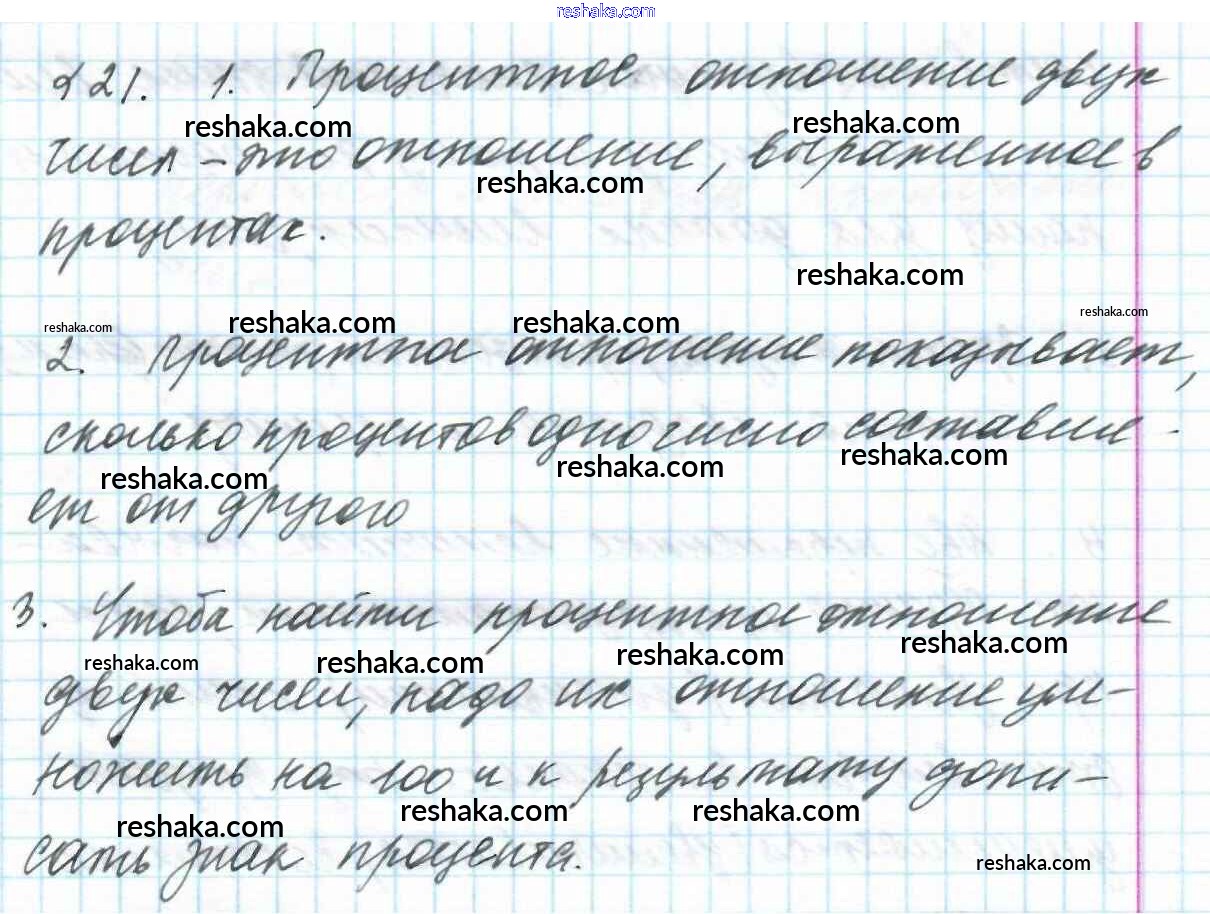 reshaka.com
§21. 1. Процентное отношение двух
reshaka.com reshaka.com
чисел – это отношение, выраженное в
reshaka.com
процентах.
reshaka.com
reshaka.com reshaka.com reshaka.com reshaka.com
2. Процентное отношение показывает,
сколько процентов одно число составля-
reshaka.com reshaka.com reshaka.com
ет от другого
3. Чтобы найти процентное отношение
reshaka.com reshaka.com reshaka.com reshaka.com
двух чисел, надо их отношение ум-
ножить на 100 и к результату допи-
reshaka.com reshaka.com reshaka.com
сать знак процента.
reshaka.com